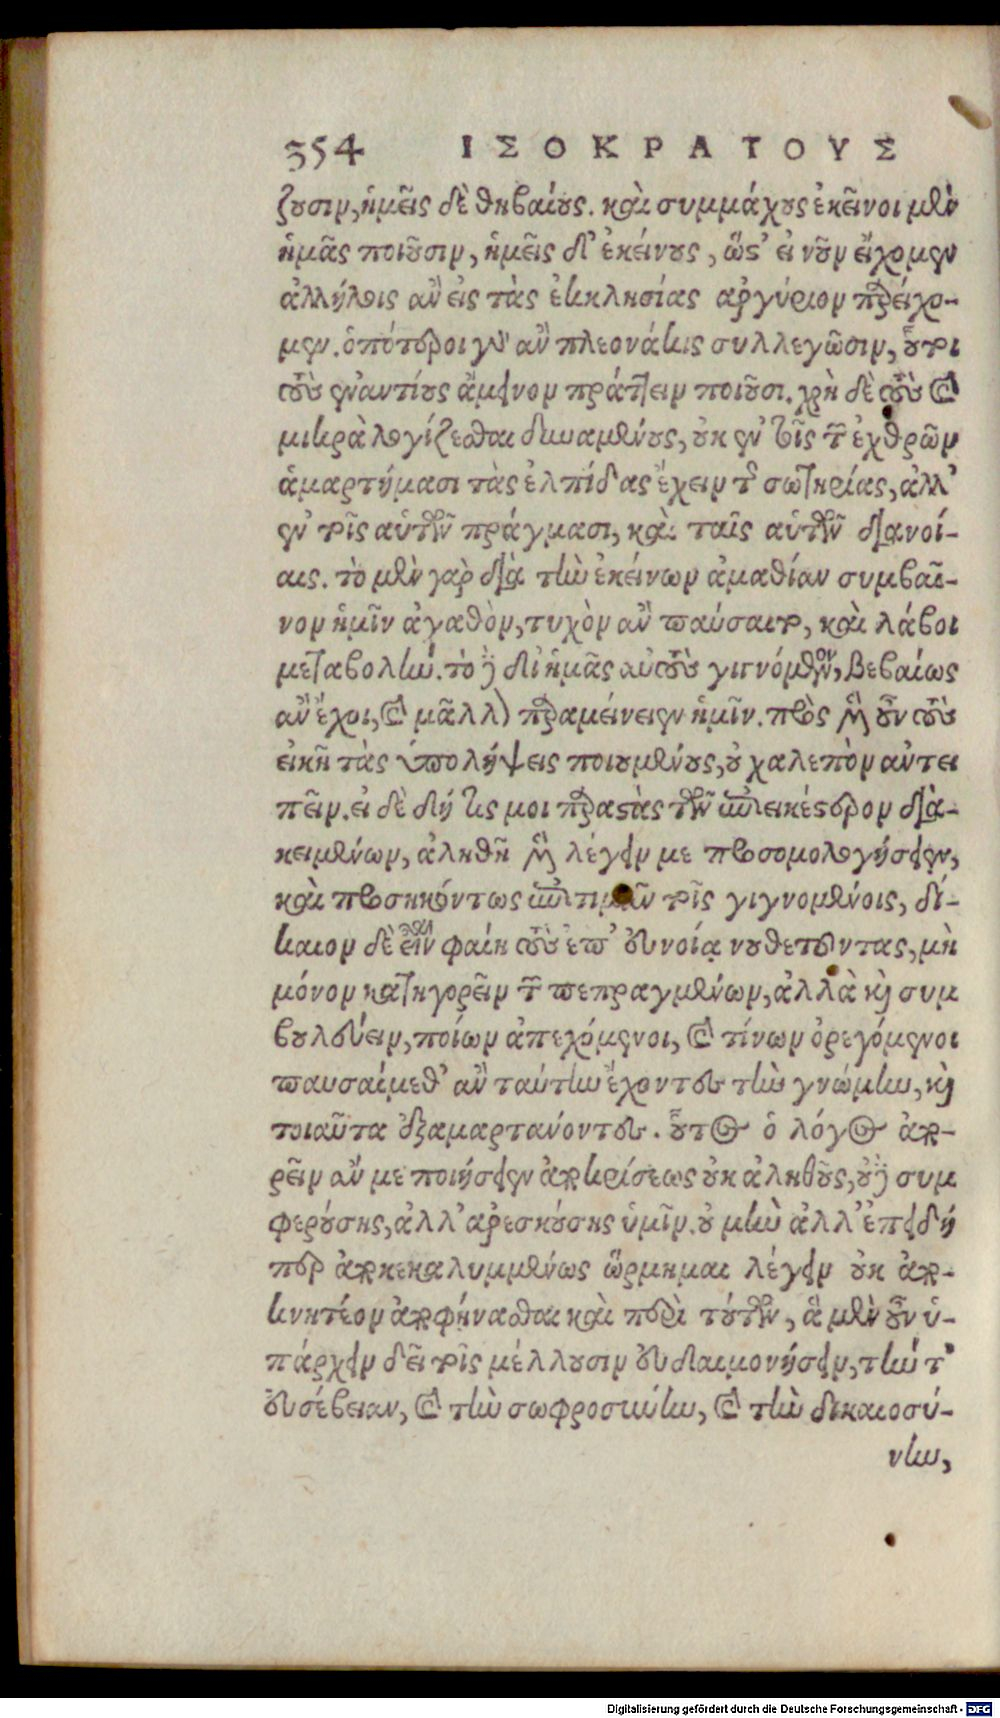 354 ΙΣΟΚΡΑΤΟΥΣ
ζουσιν, ἡμεῖς δὲ θηβαίους. καὶ συμμάχους ἐκεῖνοι μὲν
ἡμᾶς ποιοῦσιν, ἡμεῖς δ' ἐκείνους, ὥστ' εἰ νοῦν εἴχομεν
ἀλλήλοις ἂν εἰς τὰς ἐκκλησίας ἀργύριον παρείχο-
μεν. ὁπότεροι γὸ ἂν πλεονάκις συλλεγῶσιν, οὗτοι
τοὺς ἐναντίους ἄμεινον πράττειν ποιοῦσι. χρὴ δὲ τοὺς καὶ
μικρὰ λογίζεσθαι δυναμένους, οὐκ ἐν τοῖς τῶν ἐχθρῶν
ἁμαρτήμασι τὰς ἐλπίδας ἔχειν τῆς σωτηρίας, ἀλλ'
ἐν τοῖς αὑτῶν πράγμασι, καὶ ταῖς αὑτῶν διανοί-
αις. τὸ μὲν γὰρ διὰ τὴν ἐκείνων ἀμαθίαν συμβαῖ-
νον ἡμῖν ἀγαθὸν, τυχὸν ἂν παύσαιτο, καὶ λάβοι
μεταβολήν. τὸ δὲ δι' ἡμᾶς αὐτοὺς γιγνόμενον, βεβαίως
ἂν ἔχοι, καὶ μᾶλλον παραμείνειεν ἡμῖν. πρὸς μὲν οὖν τοὺς
εἰκῆ τὰς ὑπολήψεις ποιουμένους, οὐ χαλεπὸν ἀντει
πεῖν. εἰ δὲ δή τις μοι παραστὰς τῶν ἐπιεικέστερον δια-
κειμένων, ἀληθῆ μὲν λέγειν με προσομολογήσειεν,
καὶ προσηκόντως ἐπιτιμᾶν τοῖς γιγνομένοις, δί-
καιον δὲ εἶναι φαίη τοὺς ἐπ' εὐνοίᾳ νουθετοῦντας, μὴ
μόνον κατηγορεῖν τῶν πεπραγμένων, ἀλλὰ καὶ συμ
βουλεύειν, ποίων ἀπεχόμενοι, καὶ τίνων ὀρεγόμενοι
παυσαίμεθ' ἂν ταύτην ἔχοντες τὴν γνώμην, καὶ
τοιαῦτα ἐξαμαρτάνοντες. οὗτος ὁ λόγος ἀπο-
ρεῖν ἄν με ποιήσειεν ἀποκρίσεως οὐκ ἀληθοῦς, οὐδὲ συμ
φερούσης, ἀλλ' ἀρεσκούσης ὑμῖν. οὐ μὴν ἀλλ' ἐπειδή
περ ἀποκεκαλυμμένως ὥρμημαι λέγειν οὐκ ἀπο-
κνητέον ἀποφήνασθαι καὶ περὶ τούτων, ἃ μὲν οὖν ὑ-
πάρχειν δεῖ τοῖς μέλλουσιν εὐδαιμονήσειν, τήν τ'
εὐσέβειαν, καὶ τὴν σωφροσύνην, καὶ τὴν δικαιοσύ-
νην,
Digitalisierung gefördert durch die Deutsche Forschungsgemeinschaft - DFG